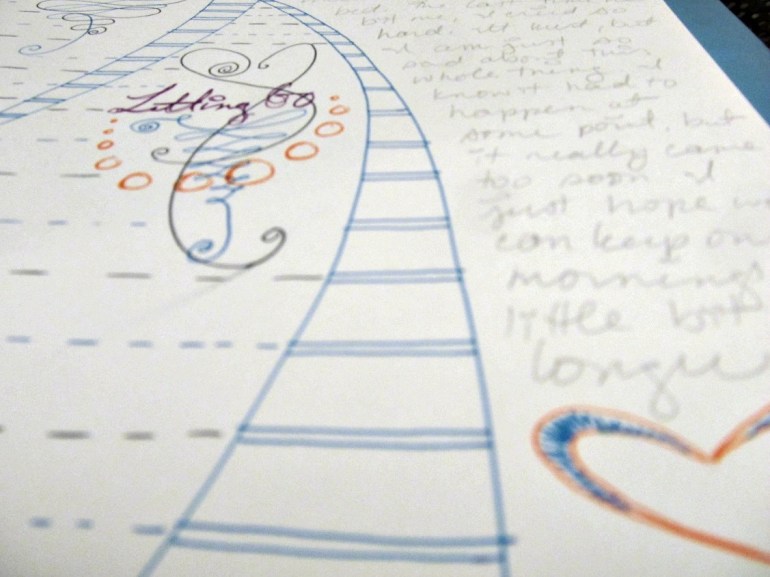 Letting Go
bed. the last
but me. I cried so
hard. it hurt, but
I am just so
sad about this
whole thing. I
know it had to
happen at
some point, but
it really came
too soon. I
just hope we
can keep on
mornings
little bit
longer